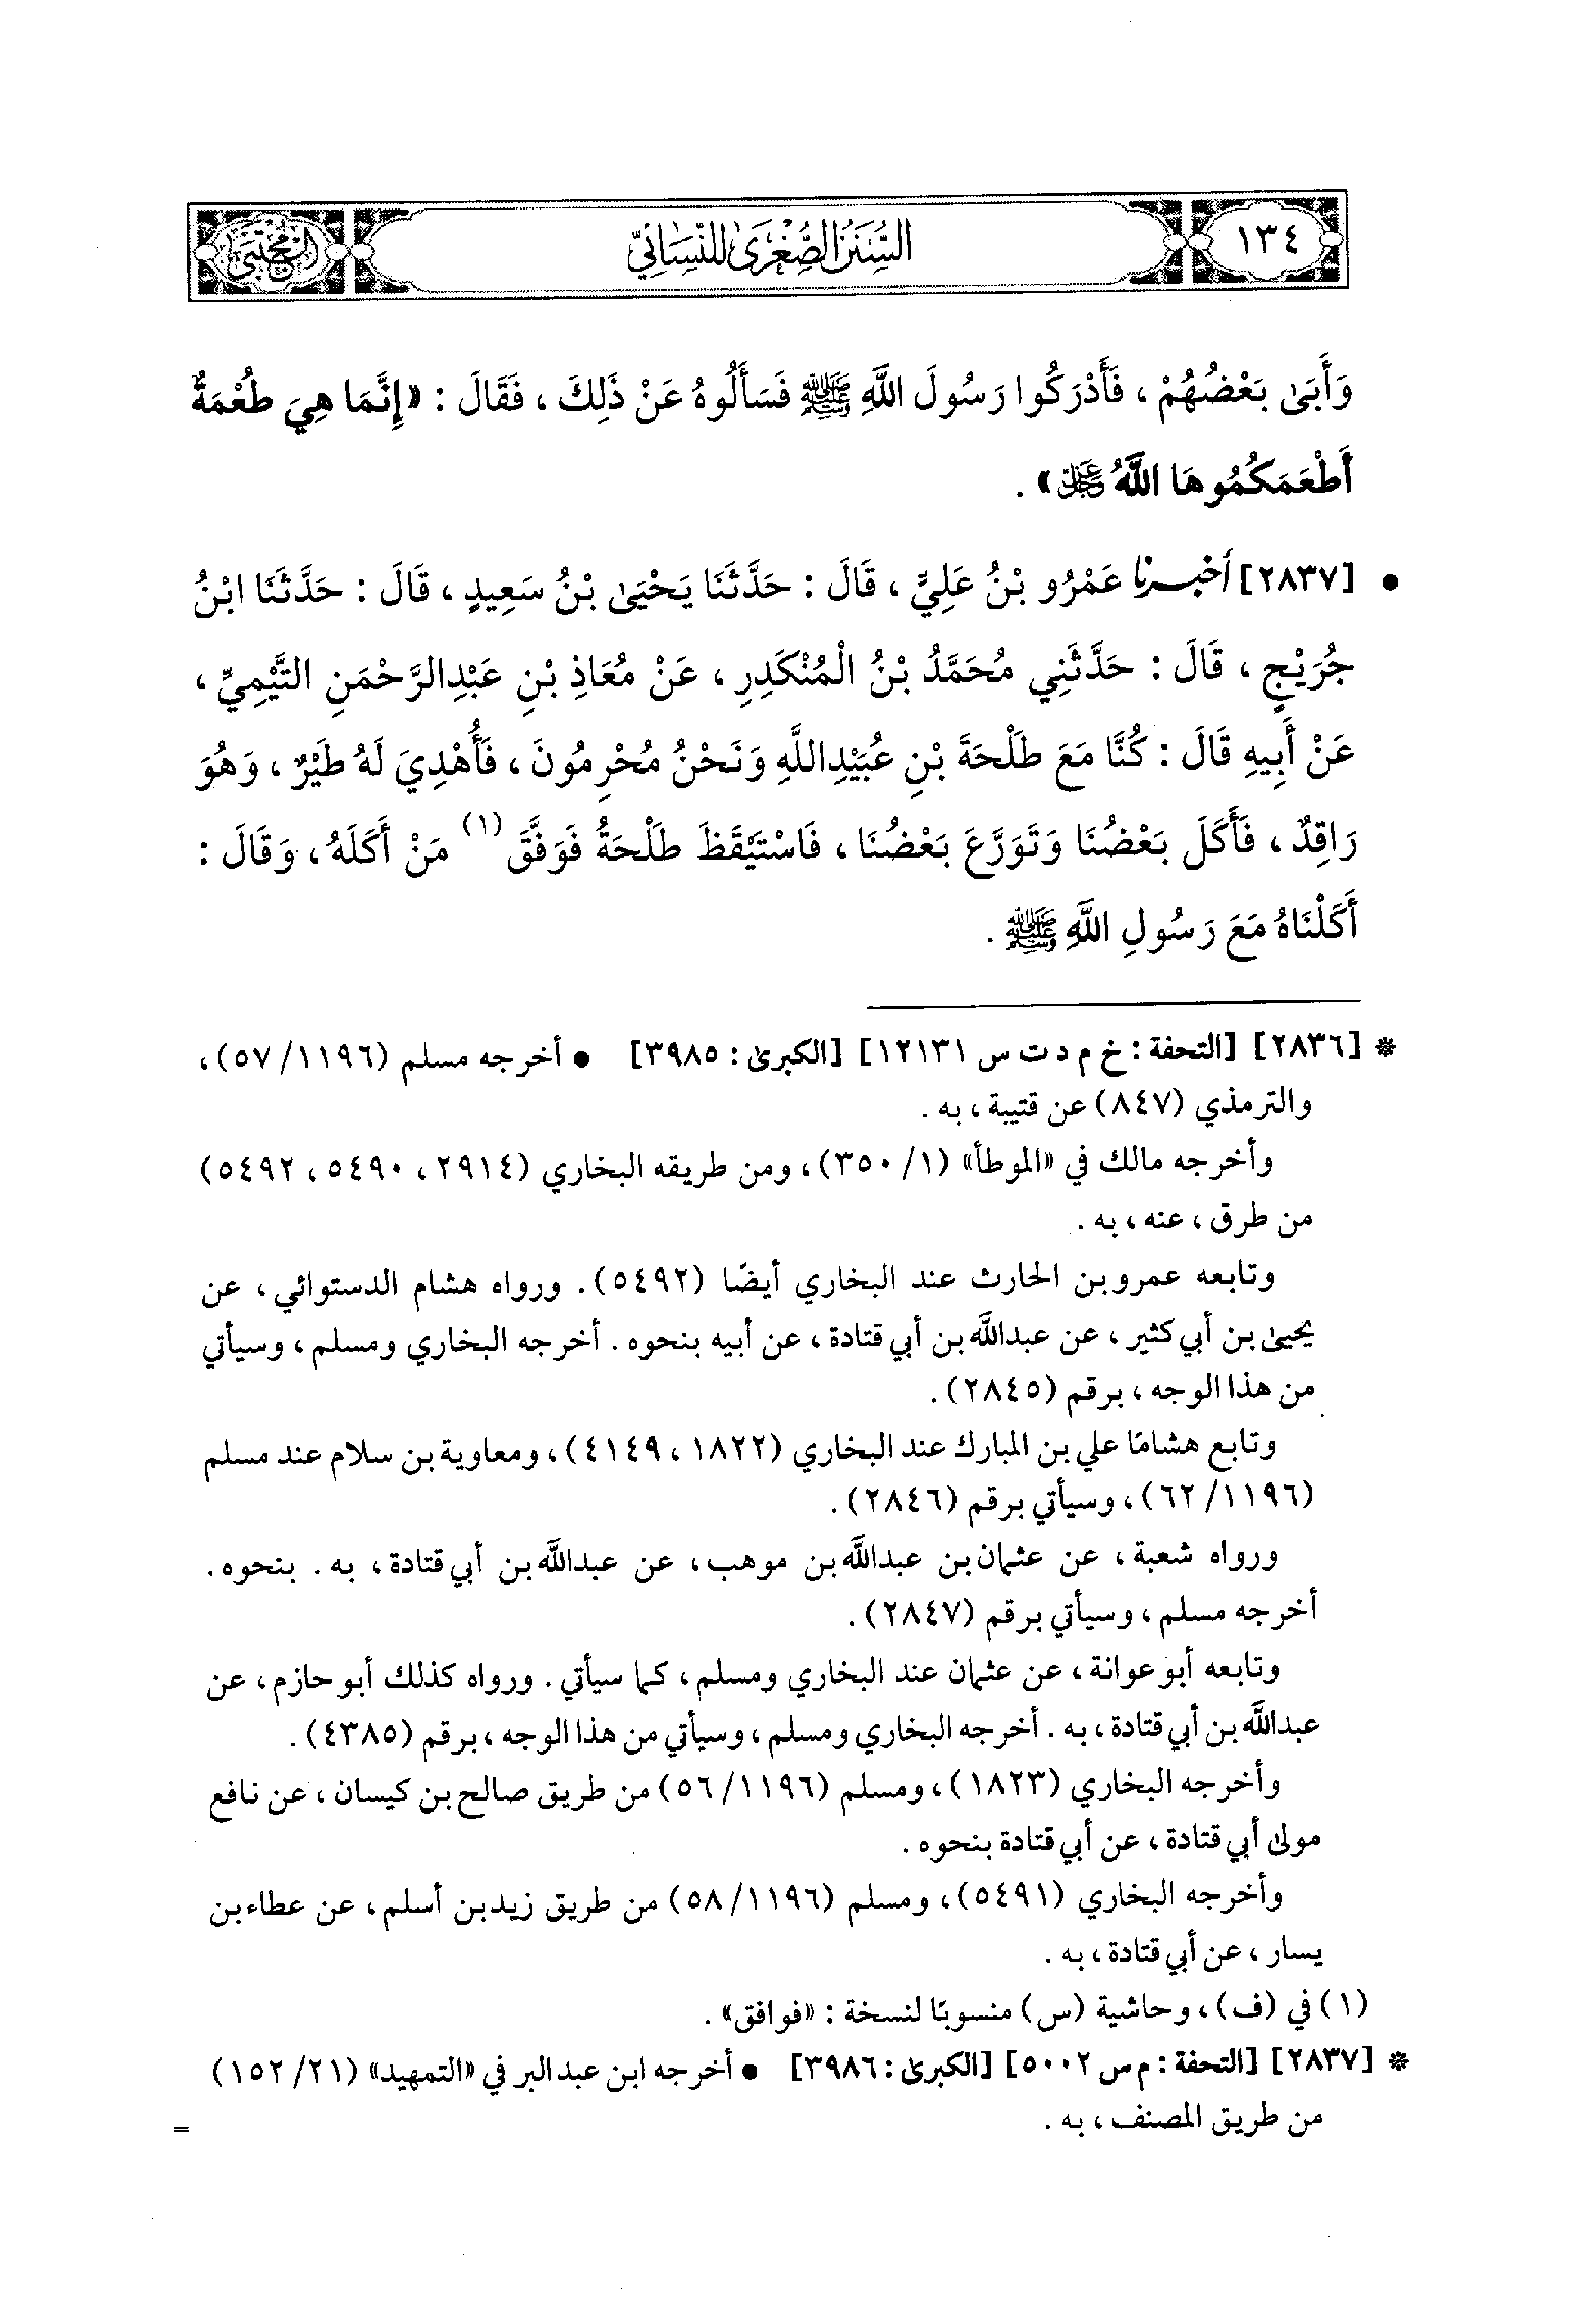 ١٣٤
السُّنَنُ الصُّغْرَىٰ لِلنَّسَائِيِّ
المجتبى
وَأَبَىٰ بَعْضُهُمْ ، فَأَدْرَكُوا رَسُولَ اللَّهِ ﷺ فَسَأَلُوهُ عَنْ ذَلِكَ ، فَقَالَ : «إِنَّمَا هِيَ طُعْمَةٌ
أَطْعَمَكُمُوهَا اللَّهُ ﷿» .
• [٢٨٣٧] أخبرنا عَمْرُو بْنُ عَلِيٍّ ، قَالَ : حَدَّثَنَا يَحْيَىٰ بْنُ سَعِيدٍ ، قَالَ : حَدَّثَنَا ابْنُ
جُرَيْجٍ ، قَالَ : حَدَّثَنِي مُحَمَّدُ بْنُ الْمُنْكَدِرِ ، عَنْ مُعَاذِ بْنِ عَبْدِالرَّحْمَنِ التَّيْمِيِّ ،
عَنْ أَبِيهِ قَالَ : كُنَّا مَعَ طَلْحَةَ بْنِ عُبَيْدِاللَّهِ وَنَحْنُ مُحْرِمُونَ ، فَأُهْدِيَ لَهُ طَيْرٌ ، وَهُوَ
رَاقِدٌ ، فَأَكَلَ بَعْضُنَا وَتَوَرَّعَ بَعْضُنَا ، فَاسْتَيْقَظَ طَلْحَةُ فَوَفَّقَ (١) مَنْ أَكَلَهُ ، وَقَالَ :
أَكَلْنَاهُ مَعَ رَسُولِ اللَّهِ ﷺ .
* [٢٨٣٦] [التحفة : خ م د ت س ١٢١٣١] [الكبرىٰ : ٣٩٨٥] • أخرجه مسلم (١١٩٦/ ٥٧) ،
والترمذي (٨٤٧) عن قتيبة ، به .
وأخرجه مالك في «الموطأ» (١/ ٣٥٠) ، ومن طريقه البخاري (٢٩١٤ ، ٥٤٩٠ ، ٥٤٩٢)
من طرق ، عنه ، به .
وتابعه عمرو بن الحارث عند البخاري أيضًا (٥٤٩٢) . ورواه هشام الدستوائي ، عن
يحيىٰ بن أبي كثير ، عن عبدالله بن أبي قتادة ، عن أبيه بنحوه . أخرجه البخاري ومسلم ، وسيأتي
من هذا الوجه ، برقم (٢٨٤٥) .
وتابع هشامًا علي بن المبارك عند البخاري (١٨٢٢ ، ٤١٤٩) ، ومعاوية بن سلام عند مسلم
(١١٩٦/ ٦٢) ، وسيأتي برقم (٢٨٤٦) .
ورواه شعبة ، عن عثمان بن عبدالله بن موهب ، عن عبدالله بن أبي قتادة ، به . بنحوه .
أخرجه مسلم ، وسيأتي برقم (٢٨٤٧) .
وتابعه أبو عوانة ، عن عثمان عند البخاري ومسلم ، كما سيأتي . ورواه كذلك أبو حازم ، عن
عبدالله بن أبي قتادة ، به . أخرجه البخاري ومسلم ، وسيأتي من هذا الوجه ، برقم (٤٣٨٥) .
وأخرجه البخاري (١٨٢٣) ، ومسلم (١١٩٦/ ٥٦) من طريق صالح بن كيسان ، عن نافع
مولىٰ أبي قتادة ، عن أبي قتادة بنحوه .
وأخرجه البخاري (٥٤٩١) ، ومسلم (١١٩٦/ ٥٨) من طريق زيد بن أسلم ، عن عطاء بن
يسار ، عن أبي قتادة ، به .
(١) في (ف) ، وحاشية (س) منسوبًا لنسخة : «فوافق» .
* [٢٨٣٧] [التحفة : م س ٥٠٠٢] [الكبرىٰ : ٣٩٨٦] • أخرجه ابن عبدالبر في «التمهيد» (٢١/ ١٥٢)
من طريق المصنف ، به .
=